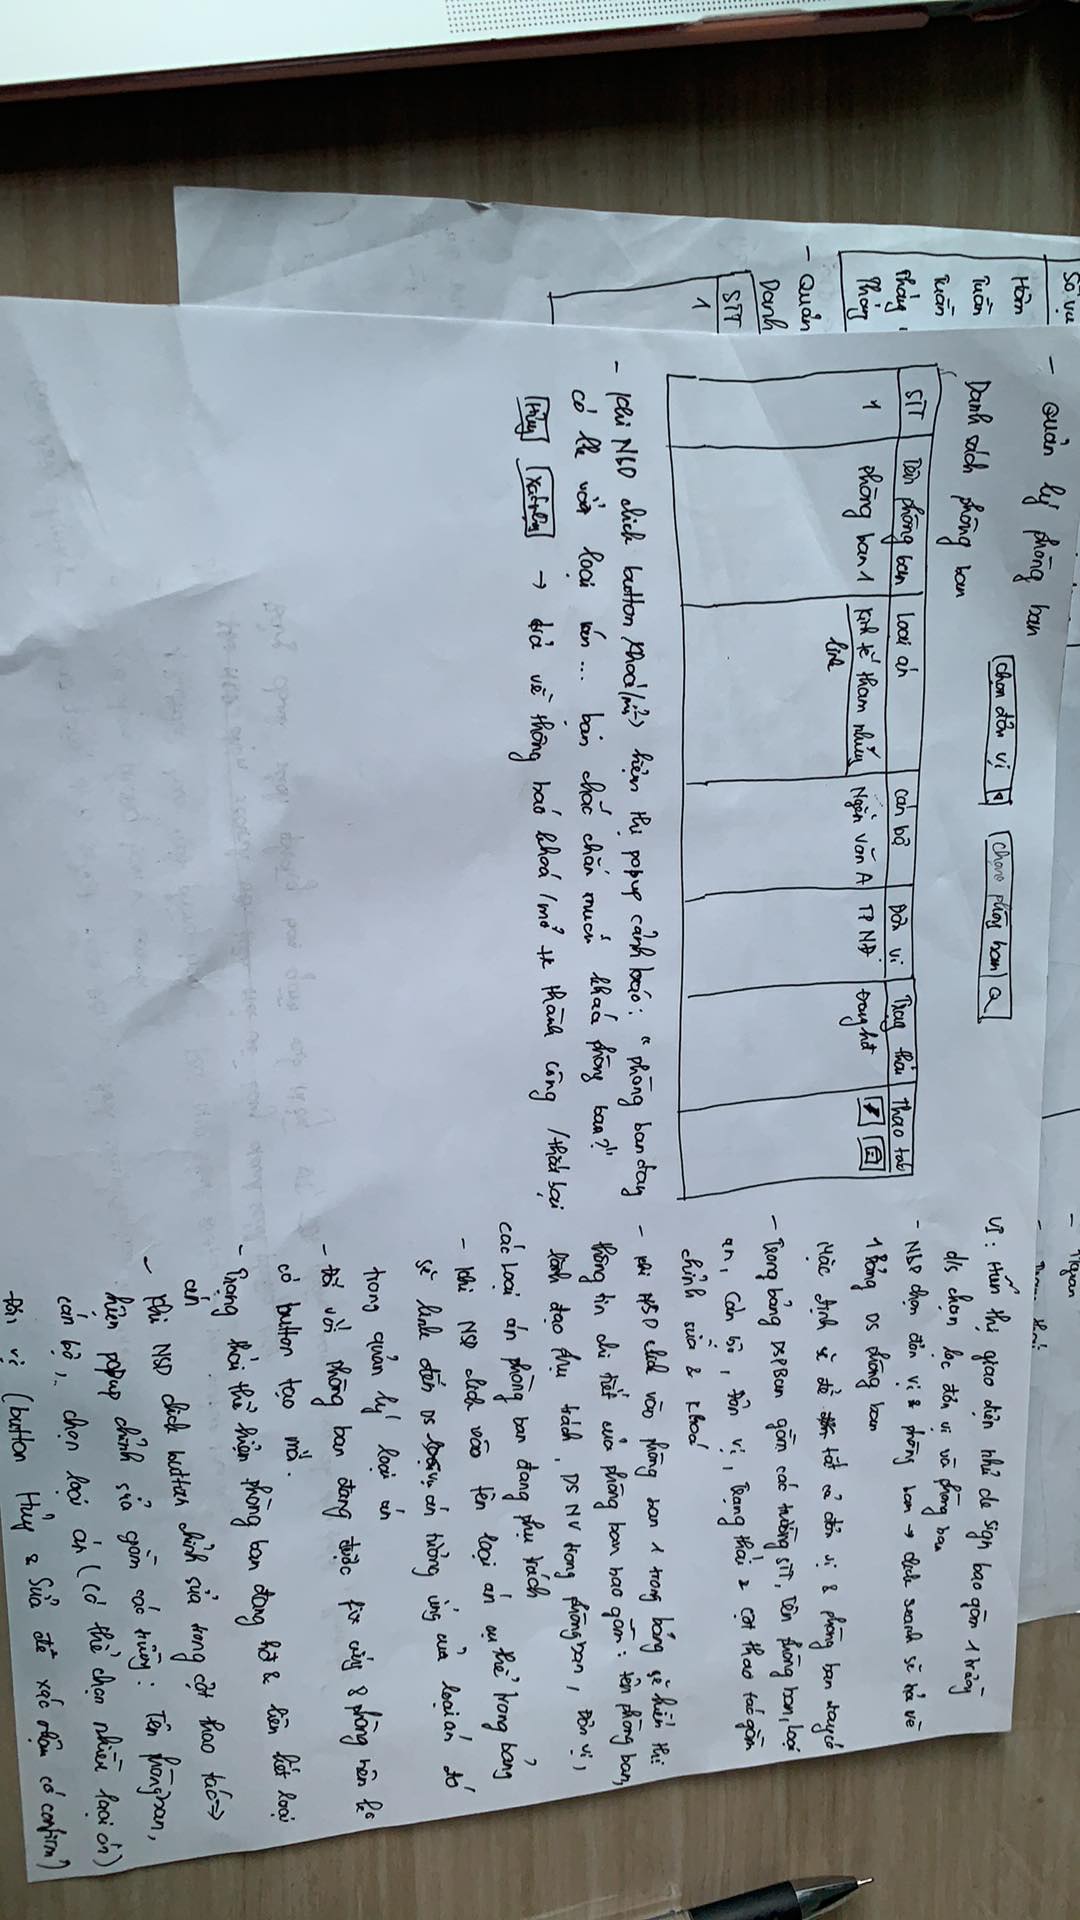 Số vụ
Hôm
Tuần
Tuần
Tháng
Tháng
- Quản
Danh
STT
1
- Ngan
- Quản lý phòng ban
Chọn đơn vị
Chọn phòng ban
Danh sách phòng ban
STT Tên phòng ban Loại án Cán bộ Đơn vị Trạng thái Thao tác
1 phòng ban 1 Kinh tế tham nhũng Ngễn Văn A TP NĐ đang hđ
link
- Khi NSD click button khoá/(mở) hiện thị popup cảnh báo: "phòng ban đang
có lk với loại án... bạn chắc chắn muốn khoá phòng ban?"
Hủy Xác nhận → trả về thông báo khoá/mở tk thành công / thất bại
VI: Hiển thị giao diện như de sign bao gồm 1 trường
d/s chọn lọc đơn vị và phòng ban
- NSD chọn đơn vị & phòng ban → click search sẽ trả về
1 Bảng DS phòng ban
Mặc định sẽ để tất cả đơn vị & phòng ban đang có
- Trong bảng DSPBan gồm các trường STT, Tên phòng ban, loại
án, Cán bộ, Đơn vị, Trạng thái & cột thao tác gồm
chỉnh sửa & khoá
- Khi NSD click vào phòng ban 1 trong bảng sẽ hiển thị
thông tin chi tiết của phòng ban bao gồm: tên phòng ban,
lãnh đạo phụ trách, DS NV trong phòng ban, Đơn vị,
các Loại án phòng ban đang phụ trách
- Khi NSD click vào tên loại án cụ thể trong bảng
sẽ link đến DS vụ án tương ứng của loại án đó
trong quản lý loại án
- Đối với phòng ban đang được fix cứng 8 phòng nên ko
có button tạo mới.
- Trạng thái thể hiện phòng ban đang hđ & liên kết loại
án
- Khi NSD click button chỉnh sửa trong cột thao tác →
hiện popup chỉnh sửa gồm các trường: Tên phòng ban,
cán bộ, chọn loại án (Có thể chọn nhiều loại án)
Đơn vị (button Hủy & Sửa để xác nhận có confirm)